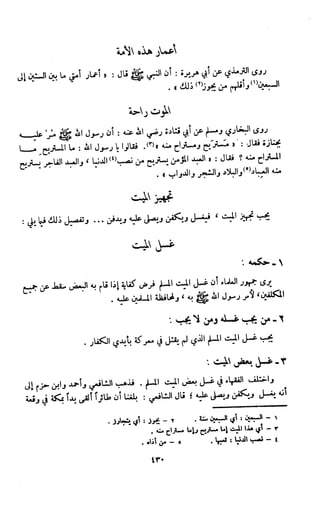 أعمار هذه الأمة
روى الترمذي عن أبي هريرة : أن النبي ﷺ قال : « أعمار أمتي ما بين الستين إلى
السبعين(١) وأقلهم من يجوز(٢) ذلك » .
الموت راحة
روى البخاري ومسلم عن أبي قتادة رضي الله عنه : أن رسول الله ﷺ مُرّ عليه
بجنازة فقال : « مستريح ومستراح منه »(٣). فقالوا يا رسول الله : ما المستريح وما
المستراح منه ؟ فقال : « العبد المؤمن يستريح من نصب(٤) الدنيا ، والعبد الفاجر يستريح
منه العباد(٥) والبلاد والشجر والدواب » .
تجهيز الميت
يجب تجهيز الميت ، فيغسل ويكفن ويصلى عليه ويدفن ... وتفصيل ذلك فيما يلي :
غسل الميت
١ - حكمه :
يرى جمهور العلماء أن غسل الميت المسلم فرض كفاية إذا قام به البعض سقط عن جميع
المكلفين ، لأمر رسول الله ﷺ به ، ولمحافظة المسلمين عليه .
٢ - من يجب غسله ومن لا يجب :
يجب غسل الميت المسلم الذي لم يقتل في معركة بأيدي الكفار .
٣ - غسل بعض الميت :
واختلف الفقهاء في غسل بعض الميت المسلم . فذهب الشافعي وأحمد وابن حزم إلى
أنه يغسل ويكفن ويصلى عليه ؛ قال الشافعي : بلغنا أن طائراً ألقى يداً بمكة في وقعة
١ - السبعين : أي السبعين سنة . ٢ - يجوز : أي يتجاوز .
٣ - أي هذا الميت إما مستريح وإما مستراح منه .
٤ - نصب الدنيا : تعبها . ٥ - من أذاه .
٤٣٠